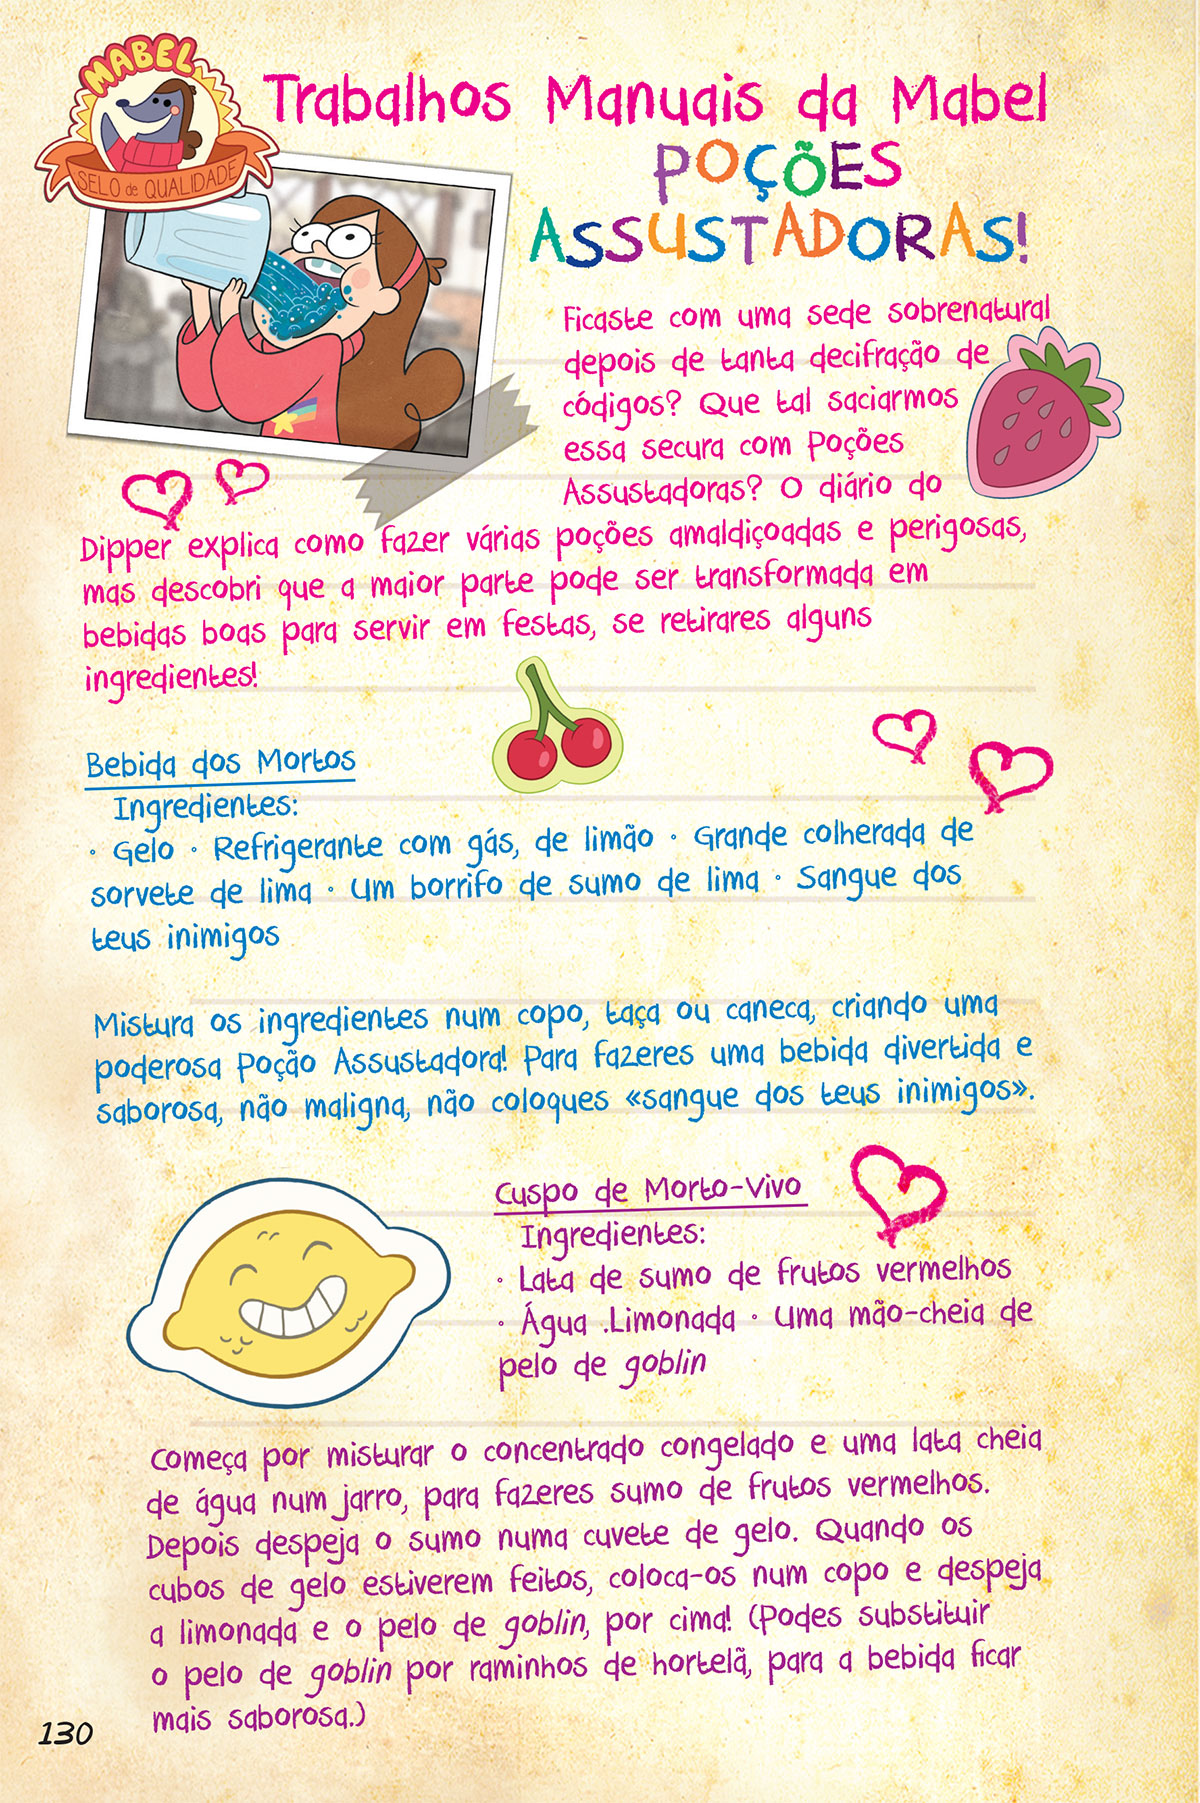 MABEL
SELO de QUALIDADE
Trabalhos Manuais da Mabel
POÇÕES
ASSUSTADORAS!
Ficaste com uma sede sobrenatural
depois de tanta decifração de
códigos? Que tal saciarmos
essa secura com Poções
Assustadoras? O diário do
Dipper explica como fazer várias poções amaldiçoadas e perigosas,
mas descobri que a maior parte pode ser transformada em
bebidas boas para servir em festas, se retirares alguns
ingredientes!
Bebida dos Mortos
Ingredientes:
• Gelo • Refrigerante com gás, de limão • Grande colherada de
sorvete de lima • Um borrifo de sumo de lima • Sangue dos
teus inimigos
Mistura os ingredientes num copo, taça ou caneca, criando uma
poderosa Poção Assustadora! Para fazeres uma bebida divertida e
saborosa, não maligna, não coloques «sangue dos teus inimigos».
Cuspo de Morto-Vivo
Ingredientes:
• Lata de sumo de frutos vermelhos
• Água .Limonada • Uma mão-cheia de
pelo de goblin
Começa por misturar o concentrado congelado e uma lata cheia
de água num jarro, para fazeres sumo de frutos vermelhos.
Depois despeja o sumo numa cuvete de gelo. Quando os
cubos de gelo estiverem feitos, coloca-os num copo e despeja
a limonada e o pelo de goblin, por cima! (Podes substituir
o pelo de goblin por raminhos de hortelã, para a bebida ficar
mais saborosa.)
130